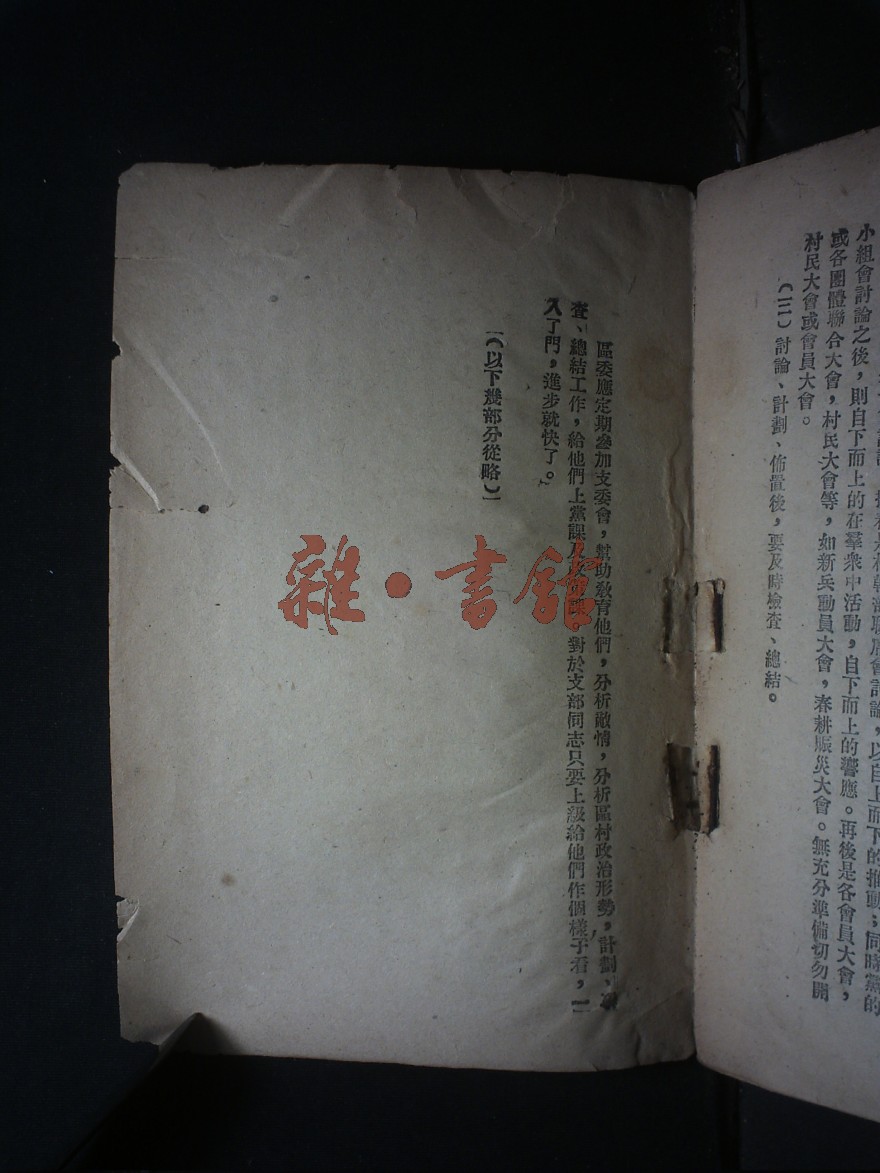 小組會討論之後，則自下而上的在羣衆中活動，自下而上的響應。再後是各會員大會，
或各團體聯合大會，村民大會等，如新兵動員大會，春耕賑災大會。無充分準備切勿開
村民大會或會員大會。
（三）討論、計劃、佈置後，要及時檢查、總結。
區委應定期參加支委會，幫助敎育他們，分析敵情，分析區村政治形勢，計劃、
查、總結工作，給他們上黨課。對於支部同志只要上級給他們作個樣子看，一
入了門，進步就快了。
（以下幾部分從略）
雜·書館